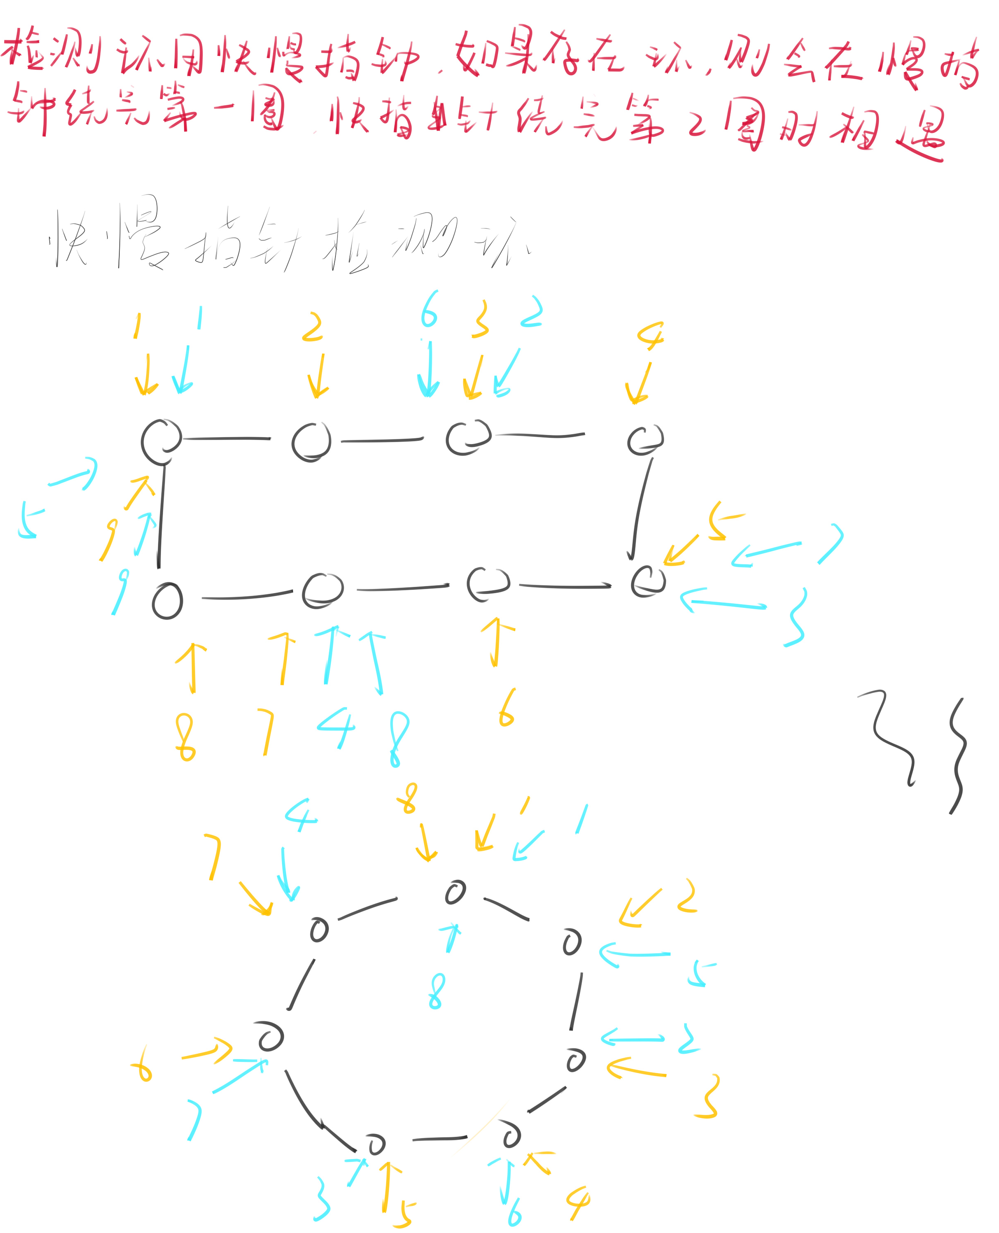 检测环用快慢指钟,如果存在环,则会在慢指
钟绕完第一圈,快指针绕完第2圈时相遇
快慢指针检测环
1 1 2 6 3 2 4
5 9 9 5 7 3
8 7 4 8 6
7 4 8 1 1
2 5
8
6 7 2 3
3 5 6 4